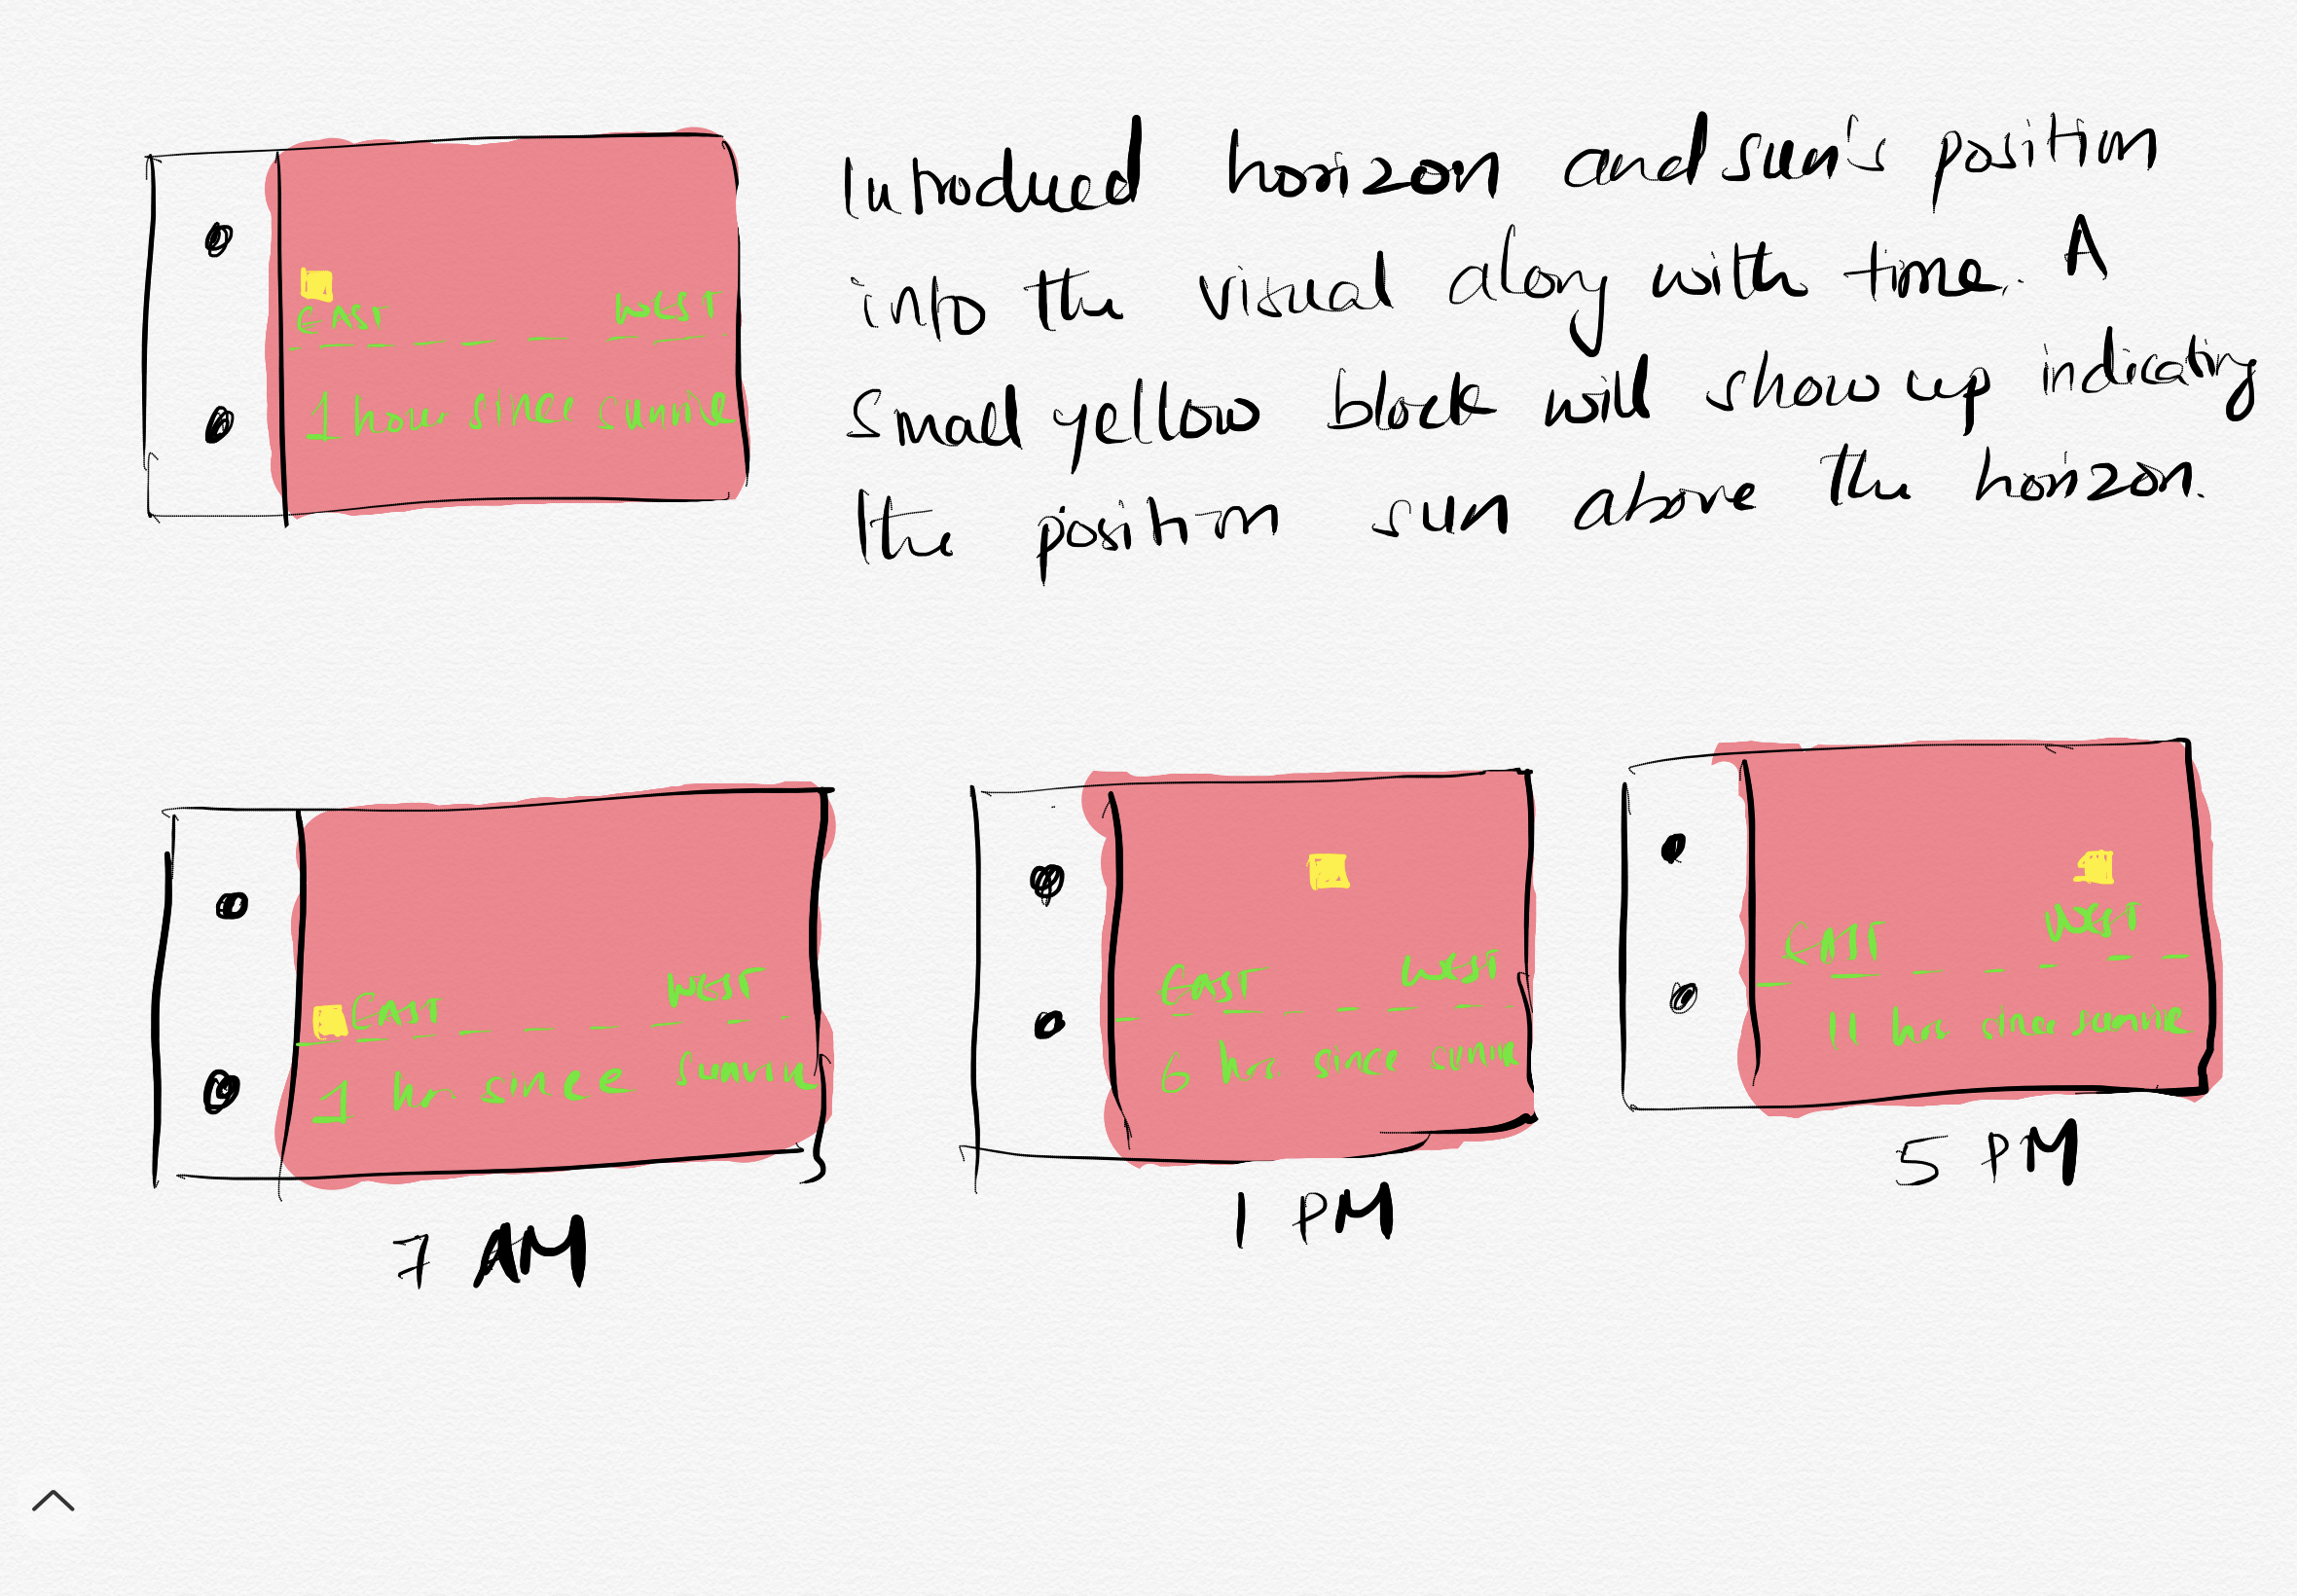 EAST WEST
1 hour since sunrise
Introduced horizon and sun's position
into the visual along with time. A
small yellow block will show up indicating
the position sun above the horizon.
EAST WEST
1 hr since sunrise
7 AM
EAST WEST
6 hrs since sunrise
1 PM
EAST WEST
11 hrs since sunrise
5 PM